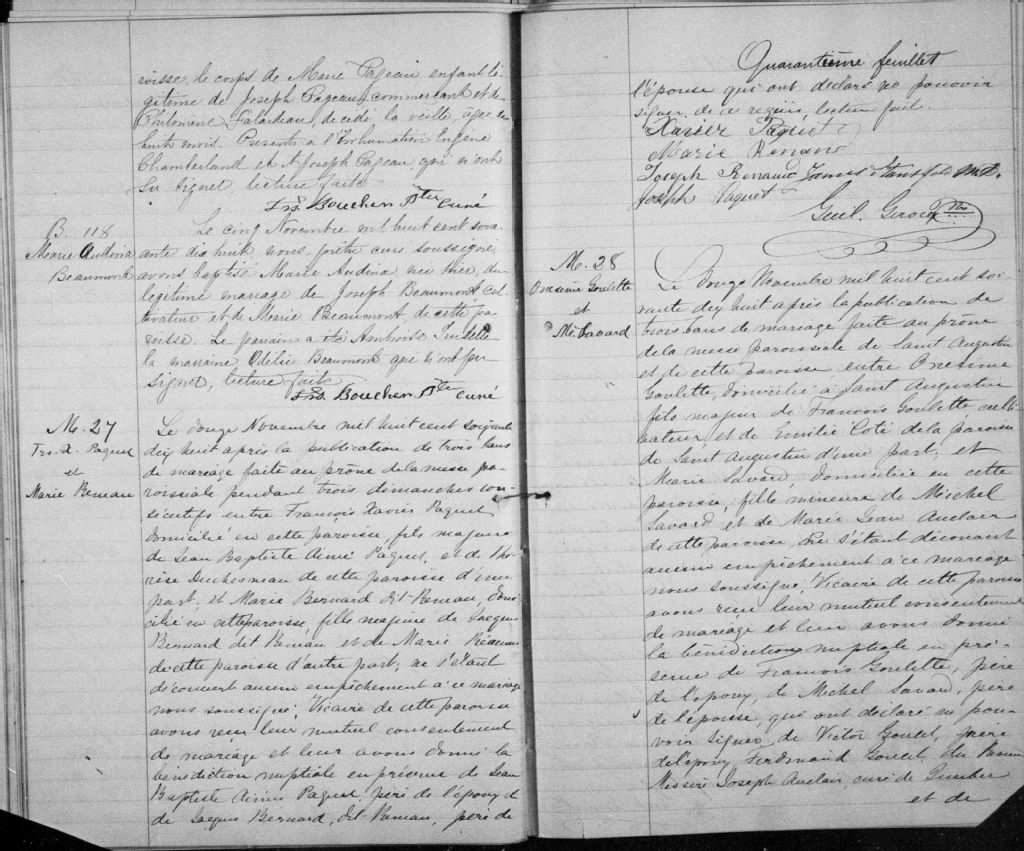 roisse, le corps de Marie Pageau enfant lé-
gitime de Joseph Pageau, commerçant et de
Philomène Falardeau, décédé la veille, agée de
huit mois. Présents à l'inhumation Eugène
Chamberland et Joseph Pageau, qui n'ont
su signer, lecture faite
Frs. Boucher Ptre curé
B. 118
Marie Audina
Beaumont
Le cinq Novembre mil huit cent soix-
ante dix huit, nous prêtre curé soussigné,
avons baptisé Marie Audina née hier, du
légitime mariage de Joseph Beaumont cul-
tivateur et de Marie Beaumont de cette pa-
roisse. Le parrain a été Ambroise
la marraine Odélie Beaumont, qui n'ont pu
signer, lecture faite
Frs. Boucher Ptre curé
M. 27
Frs. X. Paquet
et
Marie Renau
Le douze Novembre mil huit cent soixante
dix huit après la publication de trois bans
de mariage faite au prône de la messe pa-
roissiale pendant trois dimanches con-
sécutifs entre François Xavier Paquet,
domicilié en cette paroisse, fils majeur
de Jean Baptiste Aimé Paquet, et de Thé-
rèse Duchesneau de cette paroisse d'une
part, et Marie Bernard dit Renau, domi-
ciliée en cette paroisse, fille majeure de Jacques
Bernard dit Renau et de Marie
de cette paroisse d'autre part; ne s'étant
découvert aucun empêchement à ce mariage
nous soussigné, Vicaire de cette paroisse
avons reçu leur mutuel consentement
de mariage et leur avons donné la
bénédiction nuptiale en présence de Jean
Baptiste Aimé Paquet, père de l'époux et
de Jacques Bernard, dit Renau, père de
Quarantième feuillet
l'épouse qui ont déclaré ne pouvoir
signer, de ce requis, lecture faite.
Xavier Paquet
Marie Renaud
Joseph Renaud James M.D.
Joseph Paquet
Guil. Giroux Ptre
M. 28
Onésime Goulette
et
M. Savard
Le douze Novembre mil huit cent soi-
xante dix huit après la publication de
trois bans de mariage faite au prône
de la messe paroissiale de Saint Augustin
et de cette paroisse entre Onésime
Goulette, domicilié à Saint Augustin
fils majeur de François Goulette, culti-
vateur et de Emilie Coté de la paroisse
de Saint Augustin d'une part; et
Marie Savard, domiciliée en cette
paroisse, fille mineure de Michel
Savard et de Marie Jean Auclair
de cette paroisse. Ne s'étant découvert
aucun empêchement à ce mariage
nous soussigné, Vicaire de cette paroisse
avons reçu leur mutuel consentement
de mariage et leur avons donné
la bénédiction nuptiale en pré-
sence de François Goulette, père
de l'époux, de Michel Savard, père
de l'épouse, qui ont déclaré ne pou-
voir signer, de Victor Goulet, frère
de l'époux, Ferdinand Goulet, du
Messire Joseph Auclair, curé de
et de